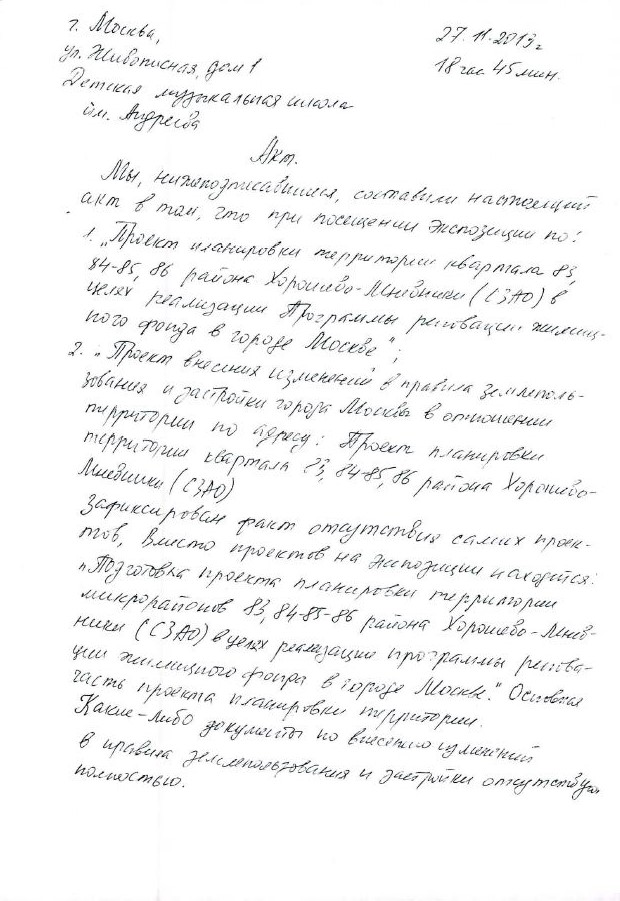 г. Москва,
ул. Живописная, дом 1
Детская музыкальная школа
им. Андреева
27.11.2019г
18 час 45 мин.
Акт.
Мы, нижеподписавшиеся, составили настоящий
акт в том, что при посещении экспозиции по:
1. „Проект планировки территории квартала 83,
84-85, 86 района Хорошево-Мневники (СЗАО) в
целях реализации Программы реновации жилищ-
ного фонда в городе Москве";
2. „Проект внесения изменений в правила землеполь-
зования и застройки города Москвы в отношении
территории по адресу: Проект планировки
территории квартала 83, 84-85, 86 района Хорошево-
Мневники (СЗАО)
Зафиксирован факт отсутствия самих проек-
тов, Вместо проектов на экспозиции находится:
„Подготовка проекта планировки территории
микрорайонов 83, 84-85-86 района Хорошево-Мнев-
ники (СЗАО) в целях реализации программы ренова-
ции жилищного фонда в городе Москве." Основная
часть проекта планировки территории.
Какие-либо документы по внесению изменений
в правила землепользования и застройки отсутствуют
полностью.